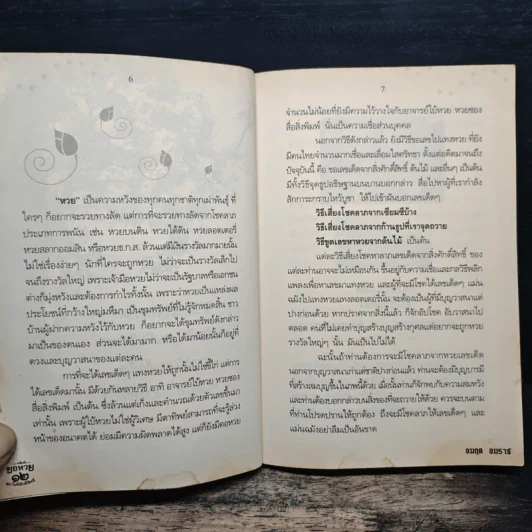 6
"หวย" เป็นความหวังของทุกคนทุกชาติทุกเผ่าพันธุ์ ที่
ใครๆ ก็อยากจะรวยทางลัด แต่การที่จะรวยทางลัดจากโชคลาภ
ประเภทการพนัน เช่น หวยบนดิน หวยใต้ดิน หวยลอตเตอรี่
หวยสลากออมสิน หรือหวยธ.ก.ส. ล้วนแต่มีเงินรางวัลมากมายนั้น
ไม่ใช่เรื่องง่ายๆ นักที่ใครจะถูกหวย ไม่ว่าจะเป็นรางวัลเล็กไป
จนถึงรางวัลใหญ่ เพราะเจ้ามือหวยไม่ว่าจะเป็นรัฐบาลหรือเอกชน
ต่างก็มุ่งหวังและต้องการกำไรทั้งนั้น เพราะว่าหวยเป็นแหล่งผล
ประโยชน์ที่กว้างใหญ่มหึมา เป็นขุมทรัพย์ที่ไม่รู้จักหมดสิ้น ชาว
บ้านผู้ฝากความหวังไว้กับหวย ก็อยากจะได้ขุมทรัพย์ดังกล่าว
มาเป็นของตนเอง ส่วนจะได้มามาก หรือได้มาน้อยนั้นก็อยู่ที่
ดวงและบุญวาสนาของแต่ละคน
การที่จะได้เลขเด็ดๆ แทงหวยให้ถูกนั้นไม่ใช่ขี้ไก่ แต่การ
ได้เลขเด็ดมานั้น มีด้วยกันหลายวิธี อาทิ อาจารย์ใบ้หวย หวยซอง
สื่อสิ่งพิมพ์ เป็นต้น ซึ่งล้วนแต่เก็งและคำนวณด้วยตัวเลขขึ้นมา
เท่านั้น เพราะผู้ใบ้หวยไม่ใช่ผู้วิเศษ มีตาทิพย์สามารถที่จะรู้ล่วง
หน้าของอนาคตได้ ย่อมมีความผิดพลาดได้สูง แต่ก็ยังมีคอหวย
ขอหวย
๑๒
7
จำนวนไม่น้อยที่ยังมีความไว้วางใจกับอาจารย์ใบ้หวย หวยซอง
สื่อสิ่งพิมพ์ นั่นเป็นความเชื่อส่วนบุคคล
นอกจากวิธีดังกล่าวแล้ว ยังมีวิธีขอเลขไปแทงหวย ที่ยัง
มีคนไทยจำนวนมากเชื่อและเลื่อมใสศรัทธา ตั้งแต่อดีตมาจนถึง
ปัจจุบันนี้ คือ ขอเลขเด็ดจากสิ่งศักดิ์สิทธิ์ ต้นไม้ และอื่นๆ เป็นต้น
มีทั้งวิธีจุดธูปอธิษฐานบนบานบอกกล่าว สื่อไปหาผู้ที่เรากำลัง
สักการะกราบไหว้บูชา ให้ไปเข้าฝันบอกเลขเด็ดๆ
วิธีเสี่ยงโชคลาภจากเซียมซีบ้าง
วิธีเสี่ยงโชคลาภจากก้านธูปที่เราจุดถวาย
วิธีขูดเลขหาหวยจากต้นไม้ เป็นต้น
แต่ละวิธีเสี่ยงโชคหาลาภเลขเด็ดจากสิ่งศักดิ์สิทธิ์นั้น ของ
แต่ละท่านอาจจะไม่เหมือนกัน ขึ้นอยู่กับความเชื่อและกลวิธีพลิก
แพลงเพื่อหาเลขมาแทงหวย และผู้ที่จะมีโชคได้เลขเด็ดๆ แม่น
ฉมังไปแทงหวยแทงลอตเตอรี่นั้น จะต้องเป็นผู้ที่มีบุญวาสนาแต่
ปางก่อนด้วย หากปราศจากสิ่งนี้แล้ว ก็จักอับโชค อับวาสนาไป
ตลอด คนที่ไม่เคยทำบุญสร้างบุญสร้างกุศลแต่อยากจะถูกหวย
รางวัลใหญ่ๆ นั้น มันเป็นไปไม่ได้
ฉะนั้นถ้าท่านต้องการจะมีโชคลาภจากหวยเลขเด็ด
นอกจากบุญวาสนาเก่าแต่ชาติปางก่อนแล้ว ท่านจะต้องมีบารมี
ที่สร้างสมบุญขึ้นในภพนี้ด้วย เมื่อนั้นท่านก็จักพบกับความสมหวัง
และท่านต้องบอกกล่าวบนสิ่งของที่จะถวายให้ด้วย ควรจะบนตาม
ที่ท่านโปรดปรานให้ถูกต้อง ถึงจะมีโชคลาภให้เลขเด็ดๆ และ
แม่นฉมังอย่าลืมเป็นอันขาด
อมฤต อมราช